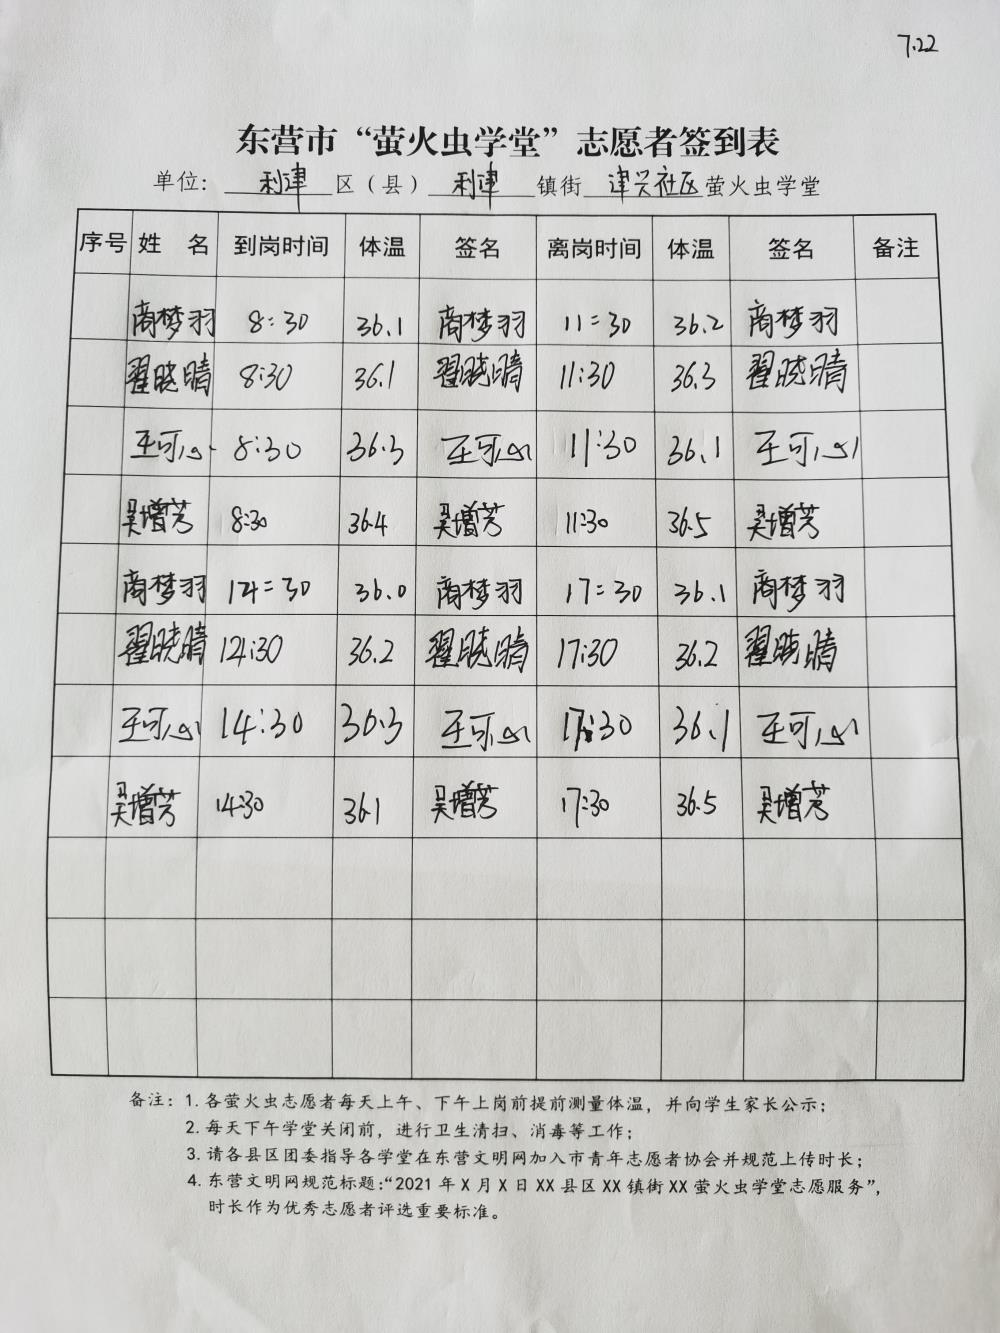 7.22
东营市“萤火虫学堂”志愿者签到表
单位：利津区（县）利津镇街津兴社区萤火虫学堂
序号 姓 名 到岗时间 体温 签名 离岗时间 体温 签名 备注
商梦羽 8:30 36.1 商梦羽 11:30 36.2 商梦羽
翟晓晴 8:30 36.1 翟晓晴 11:30 36.3 翟晓晴
王可心 8:30 36.3 王可心 11:30 36.1 王可心
吴增芳 8:30 36.4 吴增芳 11:30 36.5 吴增芳
商梦羽 14:30 36.0 商梦羽 17:30 36.1 商梦羽
翟晓晴 14:30 36.2 翟晓晴 17:30 36.2 翟晓晴
王可心 14:30 36.3 王可心 17:30 36.1 王可心
吴增芳 14:30 36.1 吴增芳 17:30 36.5 吴增芳
备注：1. 各萤火虫志愿者每天上午、下午上岗前提前测量体温，并向学生家长公示；
2. 每天下午学堂关闭前，进行卫生清扫、消毒等工作；
3. 请各县区团委指导各学堂在东营文明网加入市青年志愿者协会并规范上传时长；
4. 东营文明网规范标题：“2021 年 X 月 X 日 XX 县区 XX 镇街 XX 萤火虫学堂志愿服务”，
时长作为优秀志愿者评选重要标准。